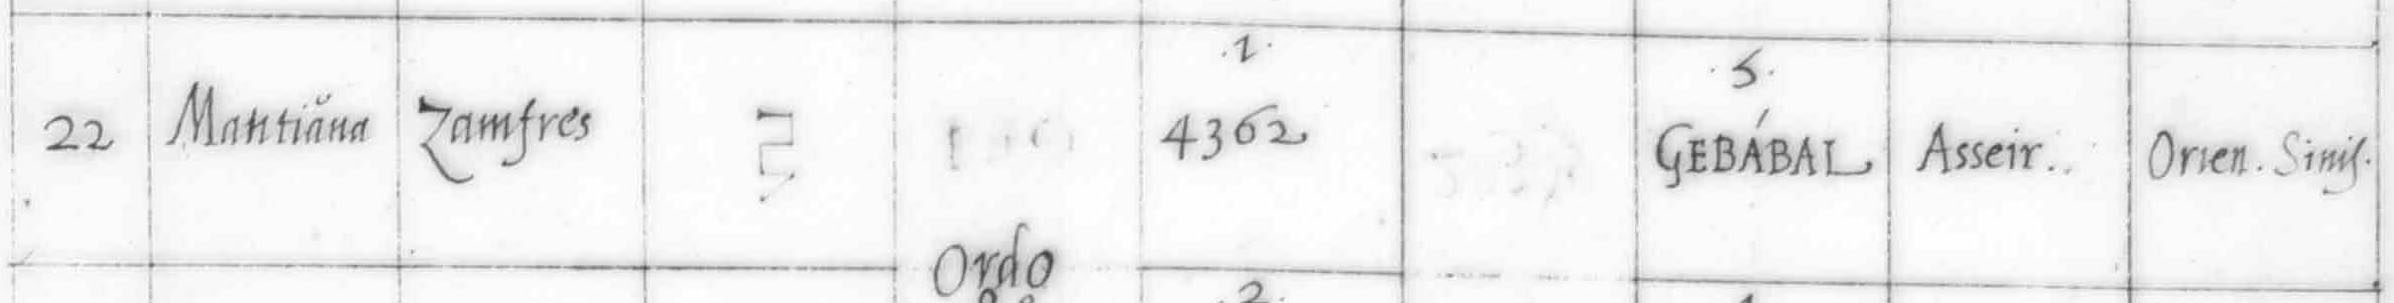 .1. .5.
22 Mantiăna Zamfres 4362 GEBÁBAL Asseir.. Orien. Sinis.
Ordo
.2.